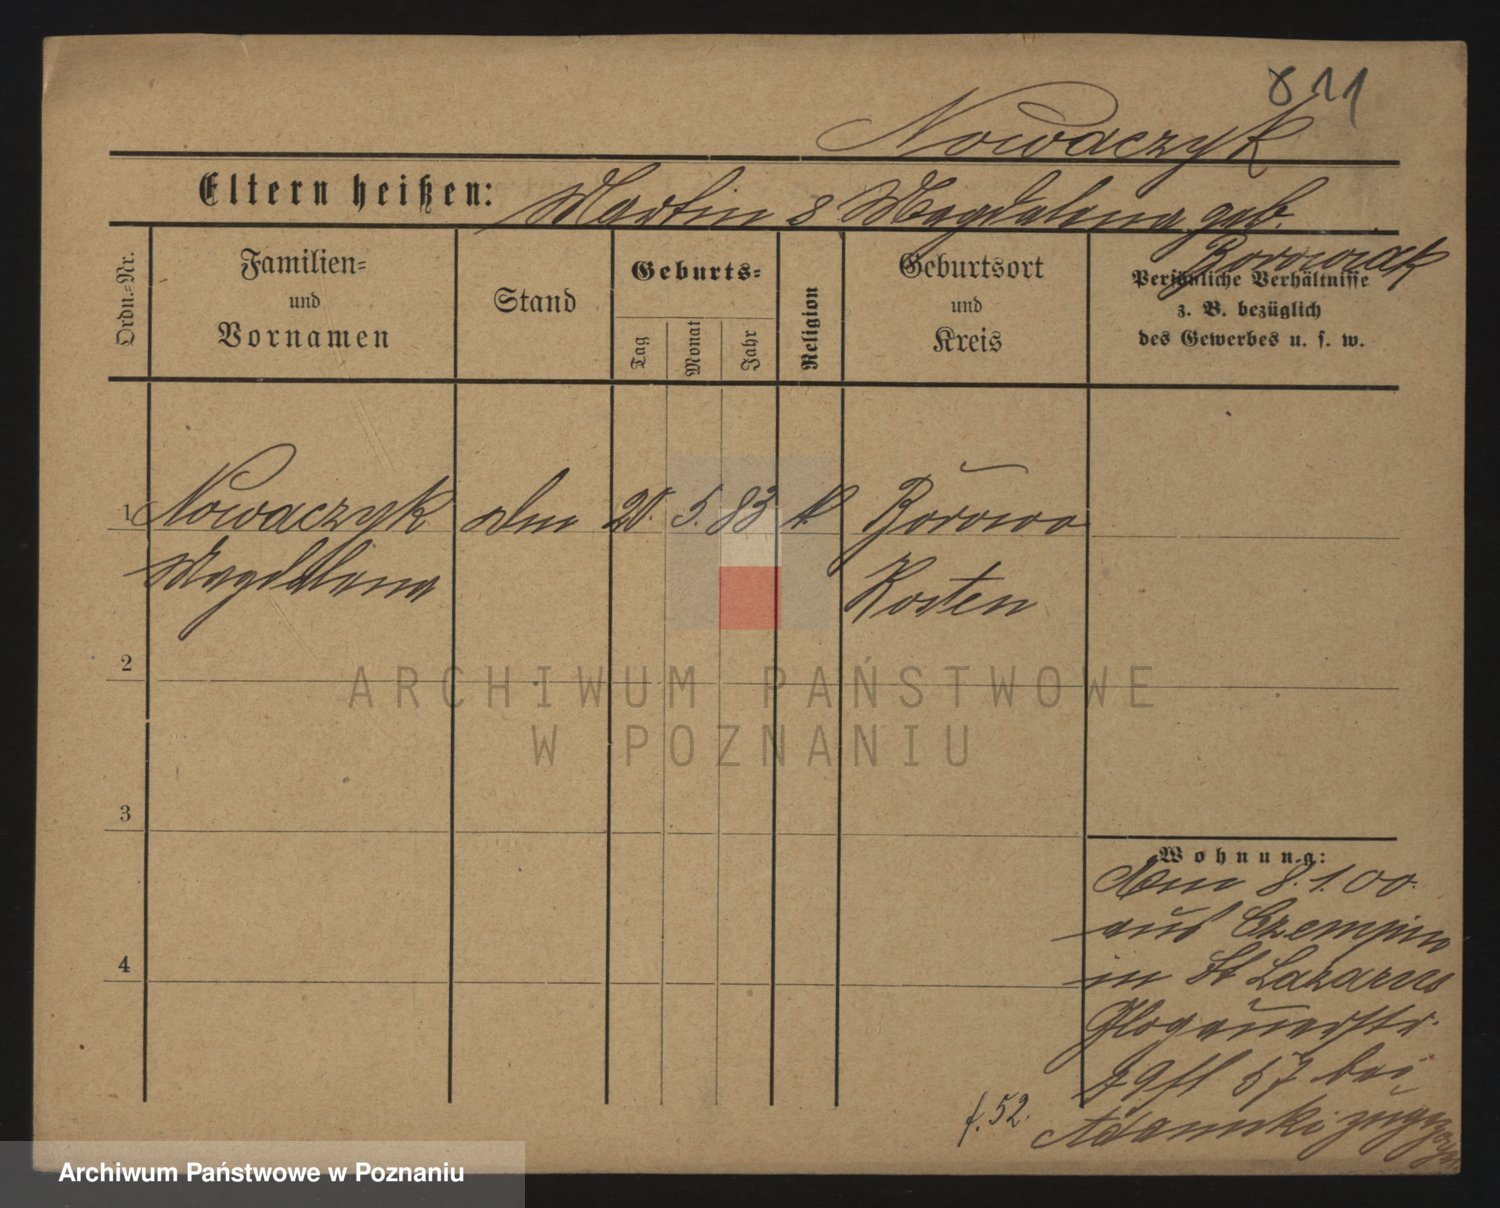 811
Nowaczyk
Eltern heißen: Martin & Magdalena geb.
Borowiak
Ordn.-Nr.
Familien-
und
Vornamen
Stand
Geburts-
Tag
Monat
Jahr
Religion
Geburtsort
und
Kreis
Persönliche Verhältnisse
z. B. bezüglich
des Gewerbes u. s. w.
1 Nowaczyk 20. 5. 83 k. Borowo
Magdalena Kosten
2
3
4
Wohnung:
Am 8.1.00.
aus Czempin
in St Lazarus
Glogauerstr.
57 bei
f. 52. Adamski
ARCHIWUM PAŃSTWOWE
W POZNANIU
Archiwum Państwowe w Poznaniu